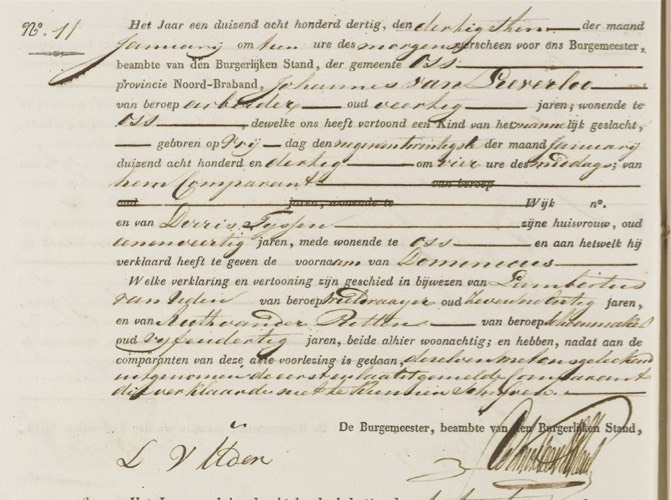 N°. 11
Het Jaar een duizend acht honderd dertig, den dertigsten der maand
Januarij om tien ure des morgens verscheen voor ons Burgemeester,
beambte van den Burgerlijken Stand, der gemeente Oss
provincie Noord-Braband, Johannes van
van beroep arbeider oud veertig jaren; wonende te
Oss, dewelke ons heeft vertoond een Kind van het mannelijk geslacht,
geboren op Vrij dag den negenentwintigste der maand Januarij
duizend acht honderd en dertig om vier ure des middags; van
hem Comparant van beroep
oud jaren, wonende te Wijk n°.
en van zijne huisvrouw, oud
eenenveertig jaren, mede wonende te Oss en aan hetwelk hij
verklaard heeft te geven de voornaam van Dominicus
Welke verklaring en vertooning zijn geschied in bijwezen van Lambertus
van Uden van beroep oud zevenendertig jaren,
en van van der van beroep schoenmaker
oud vijfendertig jaren, beide alhier woonachtig; en hebben, nadat aan de
comparanten van deze akte voorlezing is gedaan, dezelve met ons geteekend
uitgenomen de eerste en laatstgemelde Comparant
die verklaarde niet te kunnen schrijven
De Burgemeester, beambte van den Burgerlijken Stand,
L v Uden